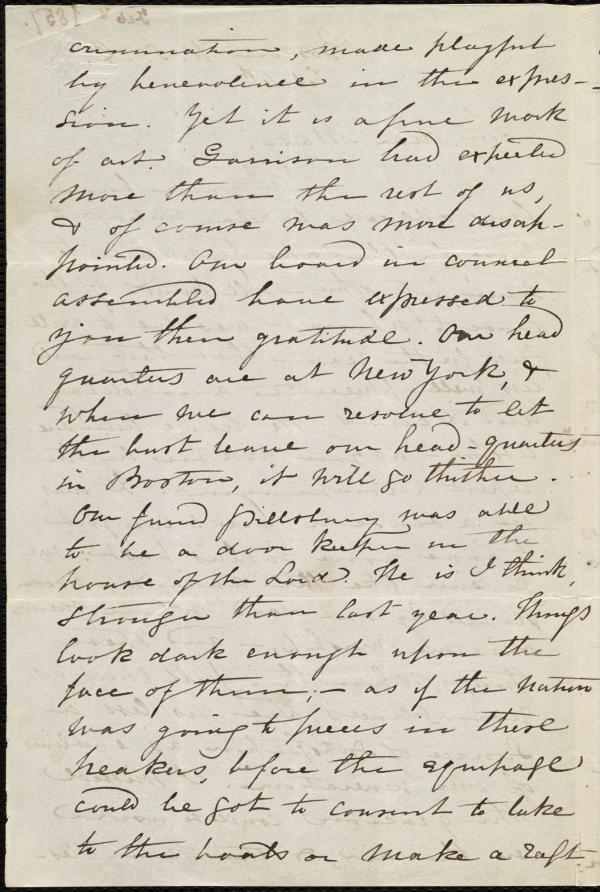 Feb 4 1857.
crimination, made playful
by benevolence in the expres-
sion. Yet it is a fine work
of art. Garrison had expected
more than the rest of us,
& of course was more disap-
pointed. Our board in counsel
assembled have expressed to
you their gratitude. Our head
quarters are at New York, &
when we can resolve to let
the bust leave our head-quarters
in Boston, it will go thither.
Our friend Pillsbury was able
to be a door keeper in the
house of the Lord. He is I think,
stronger than last year. Things
look dark enough upon the
face of them;- as if the nation
was going to pieces in these
breakers, before the equipage
could be got to consent to take
to the boats or make a raft